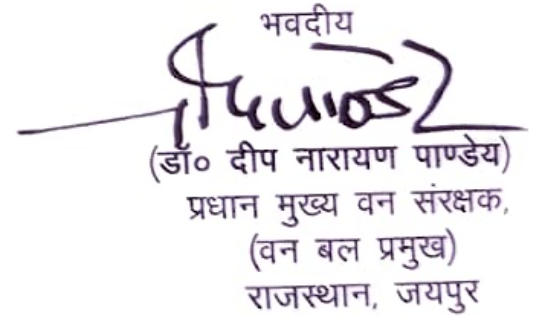 भवदीय
(डॉ० दीप नारायण पाण्डेय)
प्रधान मुख्य वन संरक्षक,
(वन बल प्रमुख)
राजस्थान, जयपुर